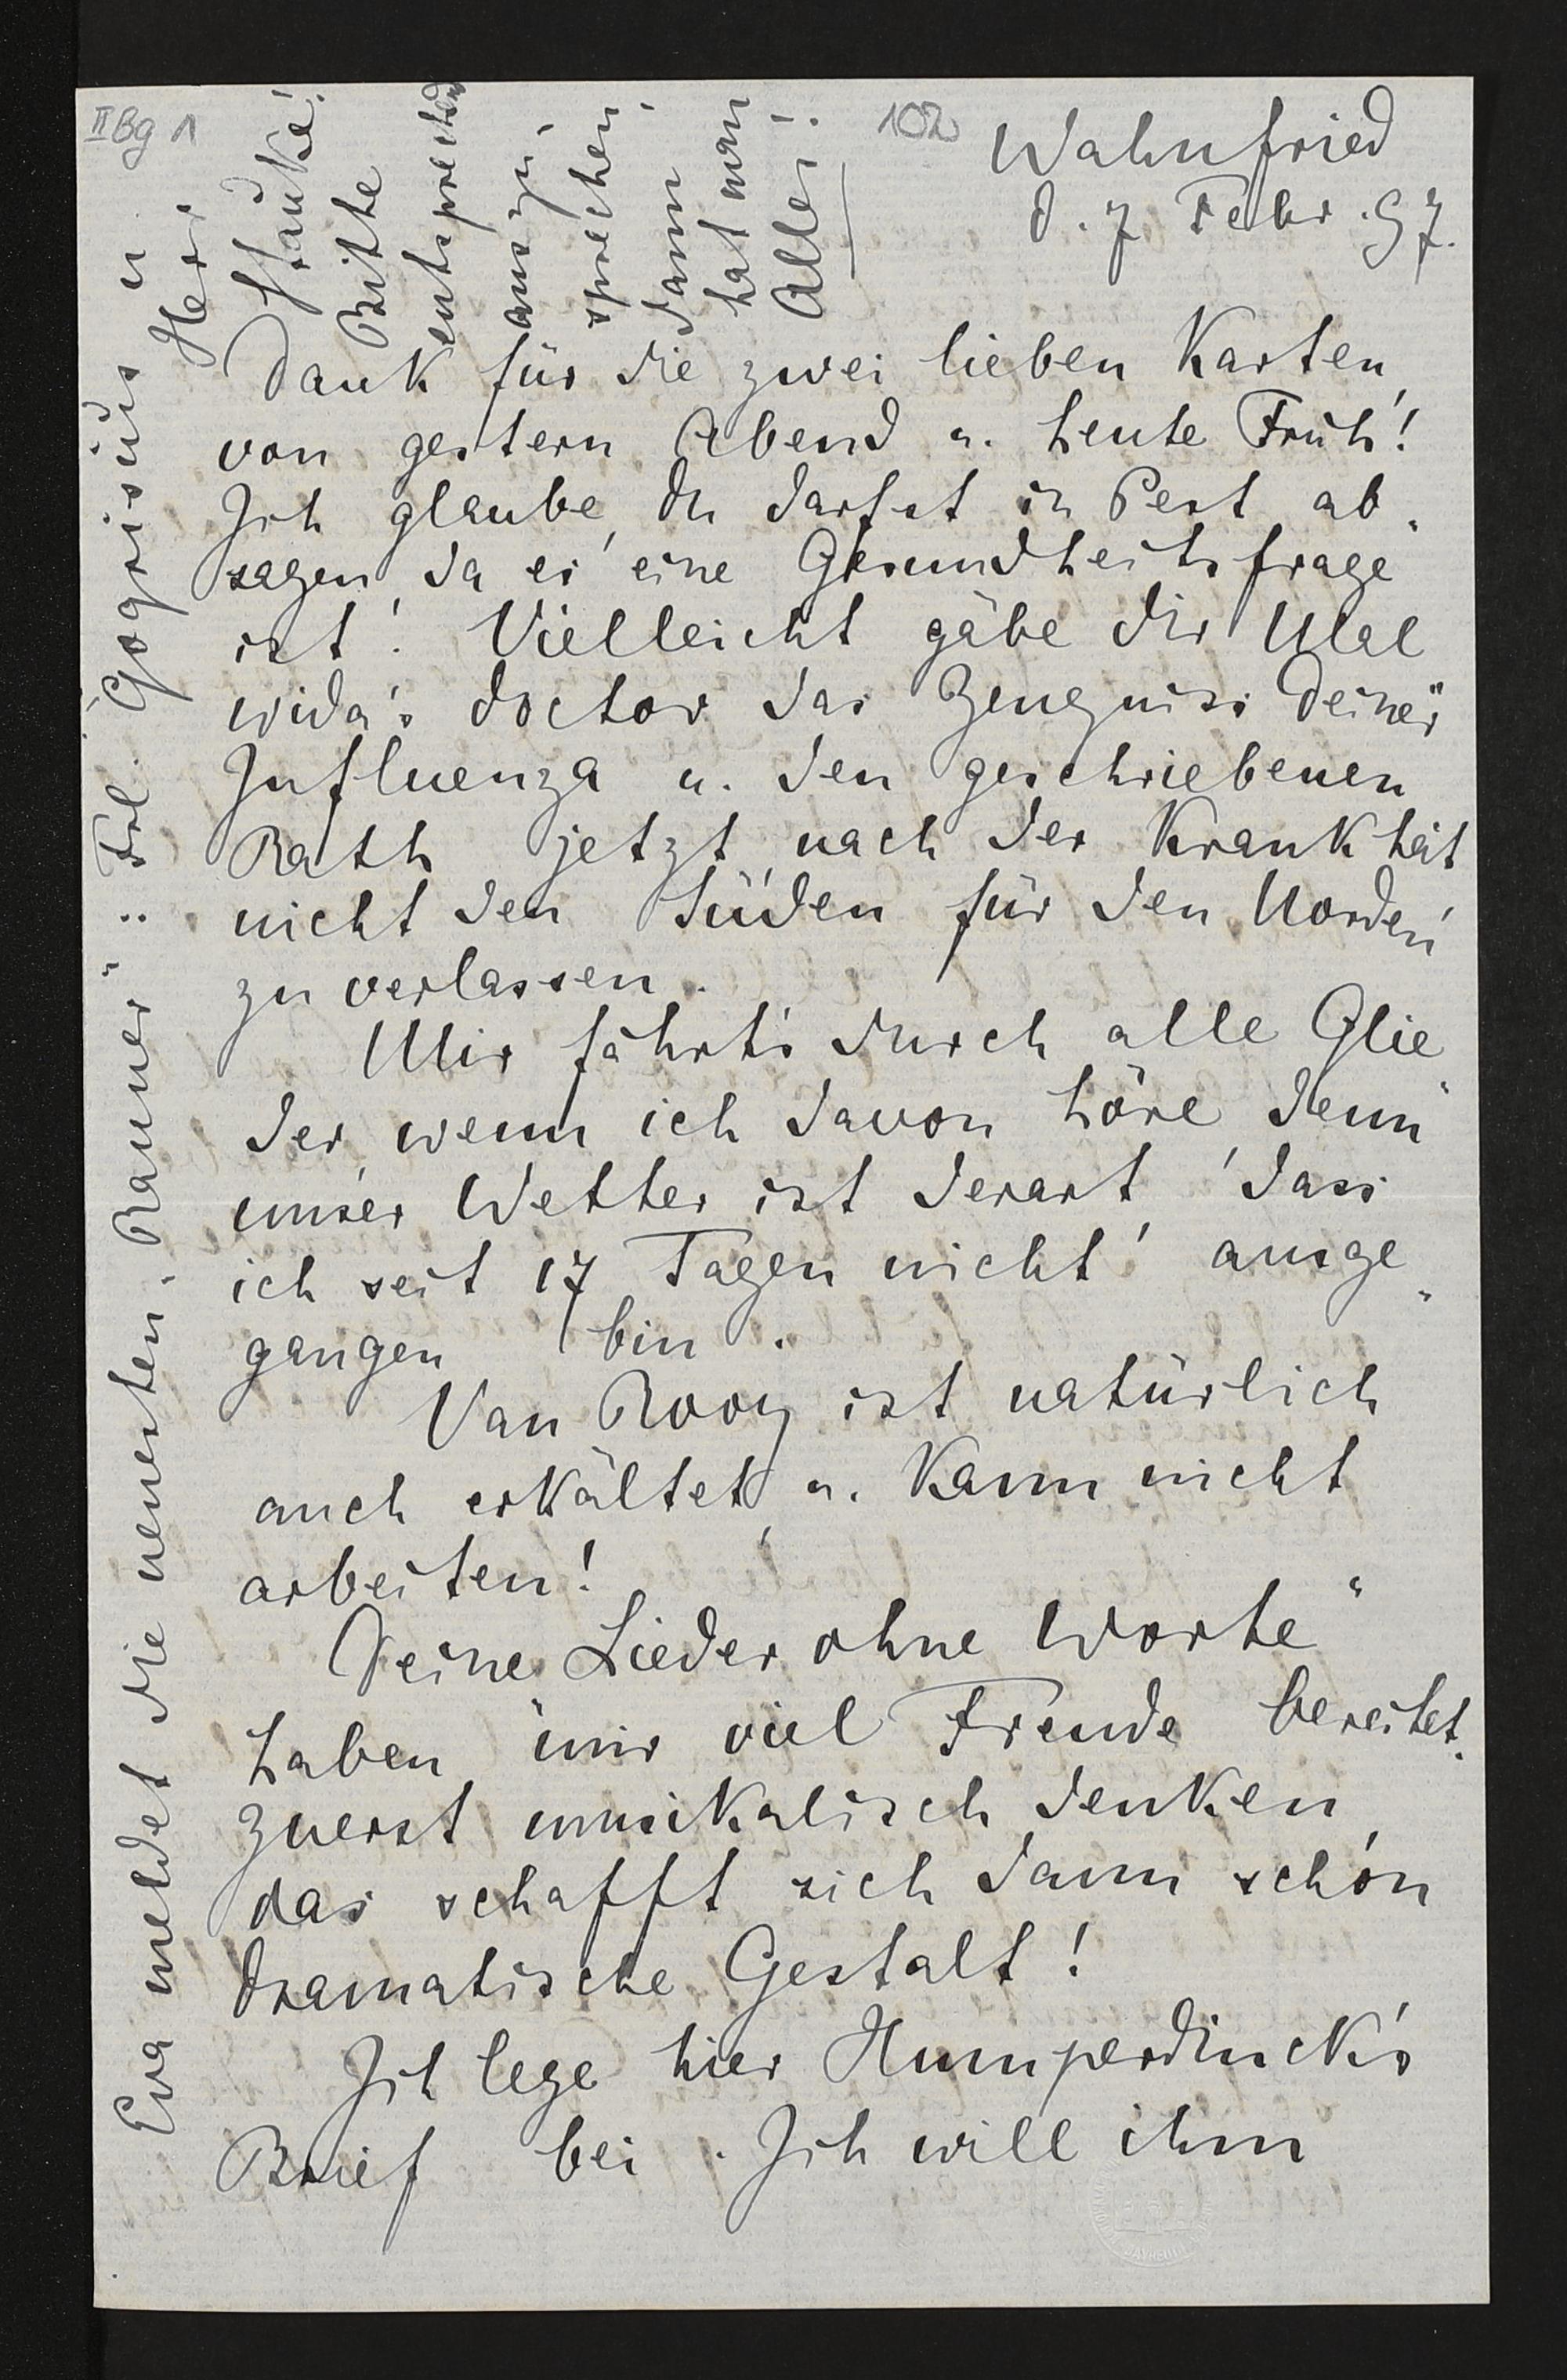 II Bg 1
102
Wahnfried
d. 7 Febr. 97.
Dank für die zwei lieben Karten,
von gestern Abend u. heute Früh!
Ich glaube, du darfst in Pest ab-
sagen, da es eine Gesundheitsfrage
ist! Vielleicht gäbe dir Mal
wida's Doctor das Zeugniss deiner
Influenza u. den geschriebenen
Rath jetzt nach der Krankheit
nicht den Süden für den Norden
zu verlassen.
Mir fährt's durch alle Glie
der, wenn ich davon höre, denn
unser Wetter ist derart, dass
ich seit 17 Tagen nicht ausge-
gangen bin.
Van Rooy ist natürlich
auch erkältet, u. kann nicht
arbeiten!
Deine „Lieder ohne Worte“
haben mir viel Freude bereitet.
Zuerst musikalisch denken,
das schafft sich dann schon
dramatische Gestalt!
Ich lege hier Humperdinck's
Brief bei. Ich will ihm
Eva meldet die neuesten „Raumer“: Frl. Gogrisius u.
Herr
Stauke!
Bitte
entsprechend
auszu
sprechen,
dann
hat man
Alles!